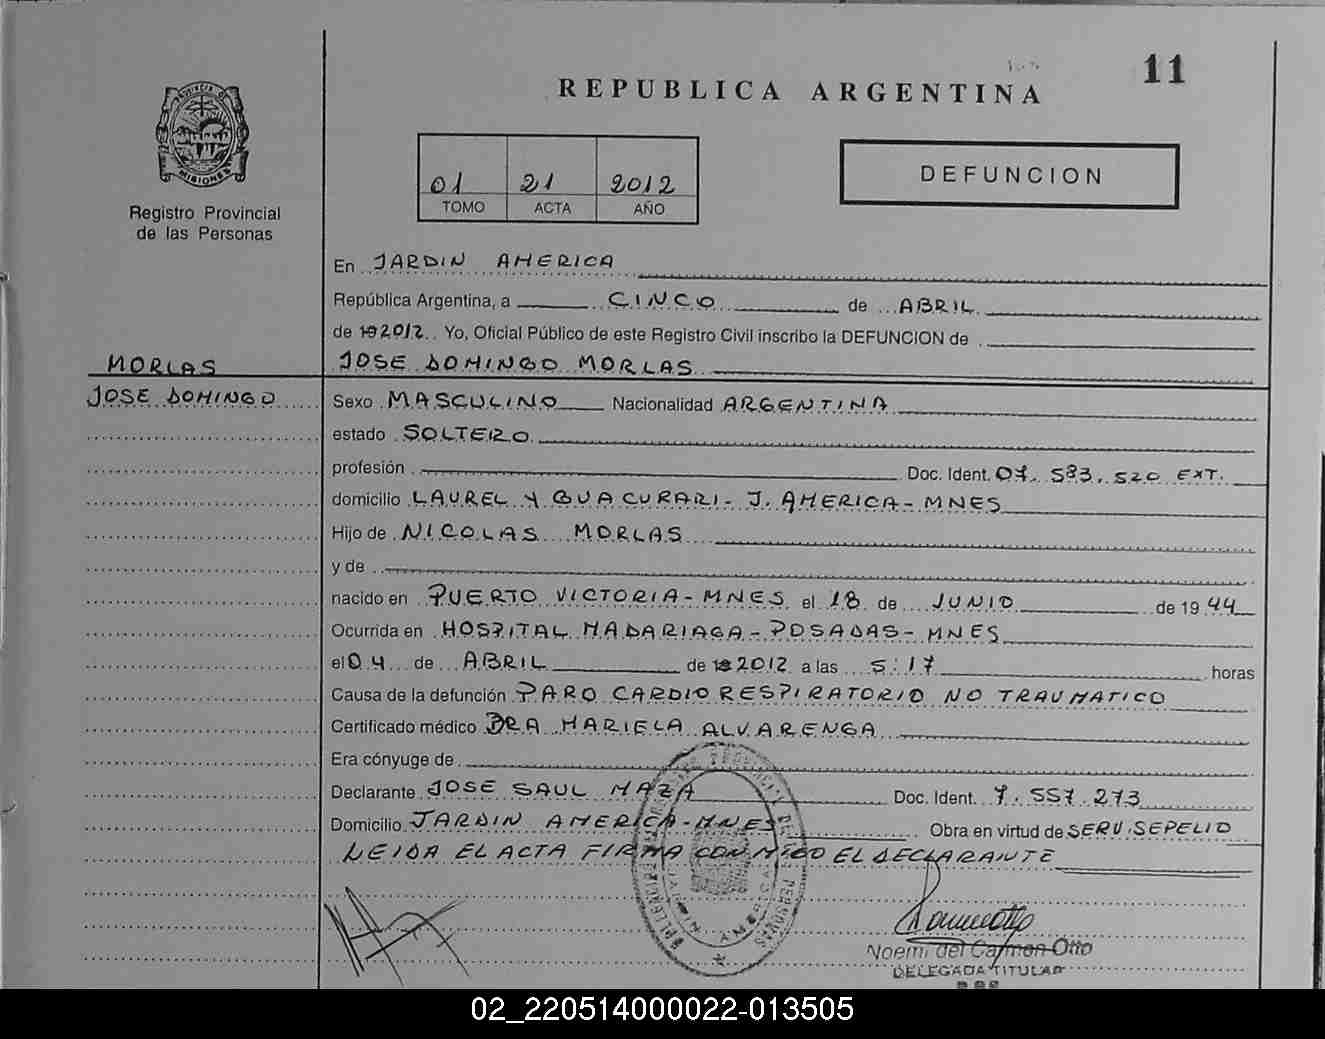 11
REPUBLICA ARGENTINA
PROVINCIA DE
MISIONES
Registro Provincial
de las Personas
01 21 2012
TOMO ACTA AÑO
DEFUNCION
En JARDIN AMERICA
República Argentina, a CINCO de ABRIL
de 2012 Yo, Oficial Público de este Registro Civil inscribo la DEFUNCION de
MORLAS
JOSE DOMINGO
JOSE DOMINGO MORLAS
Sexo MASCULINO Nacionalidad ARGENTINA
estado SOLTERO
profesión Doc. Ident. 07.583.520 EXT.
domicilio LAUREL Y GUACURARI- J. AMERICA- MNES
Hijo de NICOLAS MORLAS
y de
nacido en PUERTO VICTORIA- MNES el 18 de JUNIO de 1944
Ocurrida en HOSPITAL MADARIAGA- POSADAS- MNES
el 04 de ABRIL de 2012 a las 5:17 horas
Causa de la defunción PARO CARDIO RESPIRATORIO NO TRAUMATICO
Certificado médico DRA MARIELA ALVARENGA
Era cónyuge de
Declarante JOSE SAUL MAZA Doc. Ident. 7.557.273
Domicilio JARDIN AMERICA- MNES Obra en virtud de SERV. SEPELIO
LEIDA EL ACTA FIRMA CONMIGO EL DECLARANTE
Noemi del Carmen Otto
DELEGADA TITULAR
02_220514000022-013505